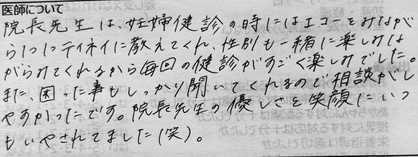 医師について
院長先生は、妊婦健診の時にはエコーをみなが
ら1つ1つテイネイに教えてくれ、性別も一緒に楽しみな
がらみてくれるから毎回の健診がすごく楽しみでした。
また、困った事もしっかり聞いてくれるので相談がし
やすかったです。院長先生の優しさと笑顔にいつ
もいやされてました(笑)。